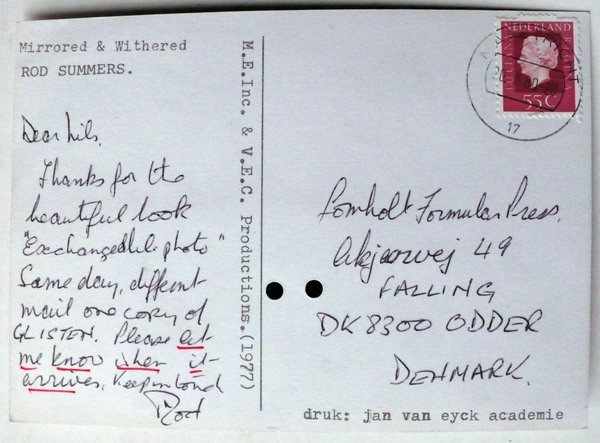 Mirrored & Withered
ROD SUMMERS.
M.E.Inc. & V.E.C. Productions.(1977)
Dear Niels,
Thanks for the
beautiful book
"Exchangeable photo"
Same day, different
mail one copy of
GLISTEN. Please let
me know when it
arrives. Keep in touch
Rod
NEDERLAND
55C
17
Lomholt Formular Press,
49
FALLING
DK 8300 ODDER
DENMARK.
druk: jan van eyck academie